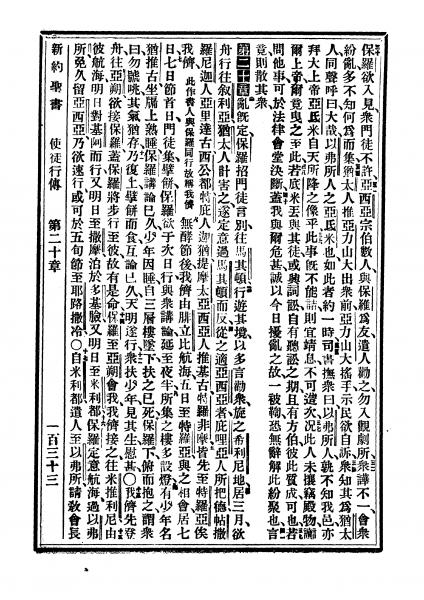 保羅欲入見衆門徒不許亞西亞宗伯數人與保羅爲友遣人勸之勿入觀劇所衆譁不一會衆
紛亂多不知何爲而集猶太人推亞力山大出衆前亞力山大搖手示民欲自訴衆知其爲猶太
人同聲呼曰大哉以弗所人之亞氐米也如此者約一時司書撫衆曰以弗所人孰不知我邑亦
拜大上帝亞氐米自天所降之像乎此事旣不能詰則宜靖息不可造次况此人未攘竊殿物讟
爾上帝爾竟曳之至此若底米丟與其徒或興詞訟自有聽訟之期且有方伯彼此質成可也若
問他事可於法律會堂決斷蓋我與爾危甚誠以今日擾亂之故一被鞫恐無辭解此紛聚也言
竟則散其衆
第二十章亂旣定保羅招門徒言別往馬其頓行遊其境以多言勸衆旋之希利尼地居三月欲
舟行往叙利亞猶太人計害之遂定意過馬其頓而反從之適亞西亞者庇哩亞人所把德帖撒
羅尼迦人亞里達古西公都特庇人迦猶提摩太亞西亞人推基古特羅非摩皆先至特羅亞俟
我儕此作書人與保羅同行故稱我儕無酵節後我儕由腓立比航海五日至特羅亞與之相會居七
日七日節首日門徒集擘餅保羅欲于次日行與衆講論延至夜半所集之樓多設燈有少年名
猶推古坐牖上熟睡保羅講論已久少年因睡自三層樓墜下扶之已死保羅下俯而抱之謂衆
曰勿號咷其氣猶存乃復上擘餅而食互論已久天明遂行衆扶少年見其生慰甚〇我儕先登
舟往亞朔欲接保羅蓋保羅將步行至彼故有是命保羅至亞朔會我我儕接之往米推利尼由
彼航海明日對基阿而行又明日至撒摩泊於多基臉又明日至米利都保羅定意航海過以弗
所免久留亞西亞乃欲速行或可於五旬節至耶路撒冷〇自米利都遣人至以弗所請敎會長
新約聖書 使徒行傳 第二十章 一百三十三